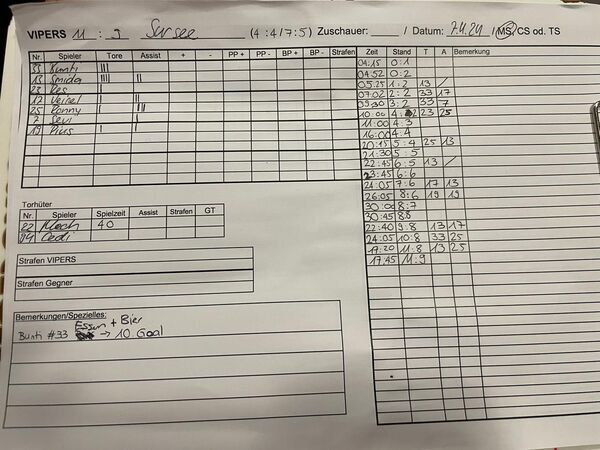 VIPERS 11 : 9 Sursee (4:4/7:5) Zuschauer: Datum: 7.4.24 / MS/CS od. TS
Nr. Spieler Tore Assist + - PP + PP - BP + BP - Strafen
33 Bunti III
13 Smida IIII II
23 Res I
17 Veisel II II
25 Ronny I III
7 Sevi I
19 Pius I I
Torhüter
Nr. Spieler Spielzeit Assist Strafen GT
22 Mech 40
Cedi
Strafen VIPERS
Strafen Gegner
Bemerkungen/Spezielles:
Essen + Bier
Bunti #33 → 10. Goal
Zeit Stand T A Bemerkung
04:15 0:1
04:52 0:2
05:25 1:2 13 /
07:02 2:2 33 17
09:30 3:2 33 7
10:00 4:2 23 25
11:00 4:3
16:00 4:4
20:15 5:4 25 13
21:30 5:5
22:45 6:5 13 /
23:45 6:6
24:05 7:6 17 13
26:05 8:6 19 19
30:00 8:7
30:45 8:8
22:40 9:8 13 17
24:05 10:8 33 25
17:20 11:8 13 25
17:45 11:9